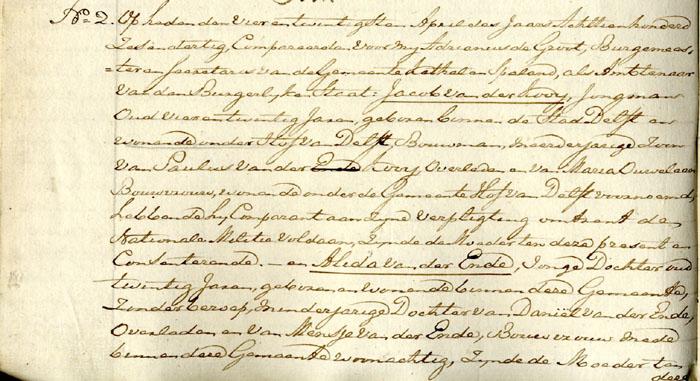 No. 2. Op heden den Vierentwintigsten April des Jaars Achttienhonderd
Zesendertig, Compareerden voor my Adrianus de Groot, Burgemees-
=ter en Secretaris van de Gemeente Kethel en Spaland, als Amtenaar
van den Burgerlyken Staat: Jacob van der Kooy, Jongman
Oud Vierentwintig Jaren, geboren binnen de Stad Delft en
wonende onder Hof van Delft, Bouwman, meerderjarige Zoon
van Paulus van der Ende Kooy Overleden en van Maria Ouweleen
Bouwvrouw, wonende onder de Gemeente Hof van Delft voornoemd,
hebbende hy Comparant aan Zyne Verpligting omtrent de
Nationale Militie Voldaan, Zynde de Moeder ten deze present en
Consenterende. — en Alida van der Ende, Jonge Dochter oud
twintig Jaren, geboren en wonende binnen deze Gemeente,
Zonder beroep, Minderjarige Dochter van Daniel van der Ende,
Overleden en van Meensje van der Ende, Bouwvrouw mede
binnen deze Gemeente woonachtig, Zynde de Moeder ten
deze